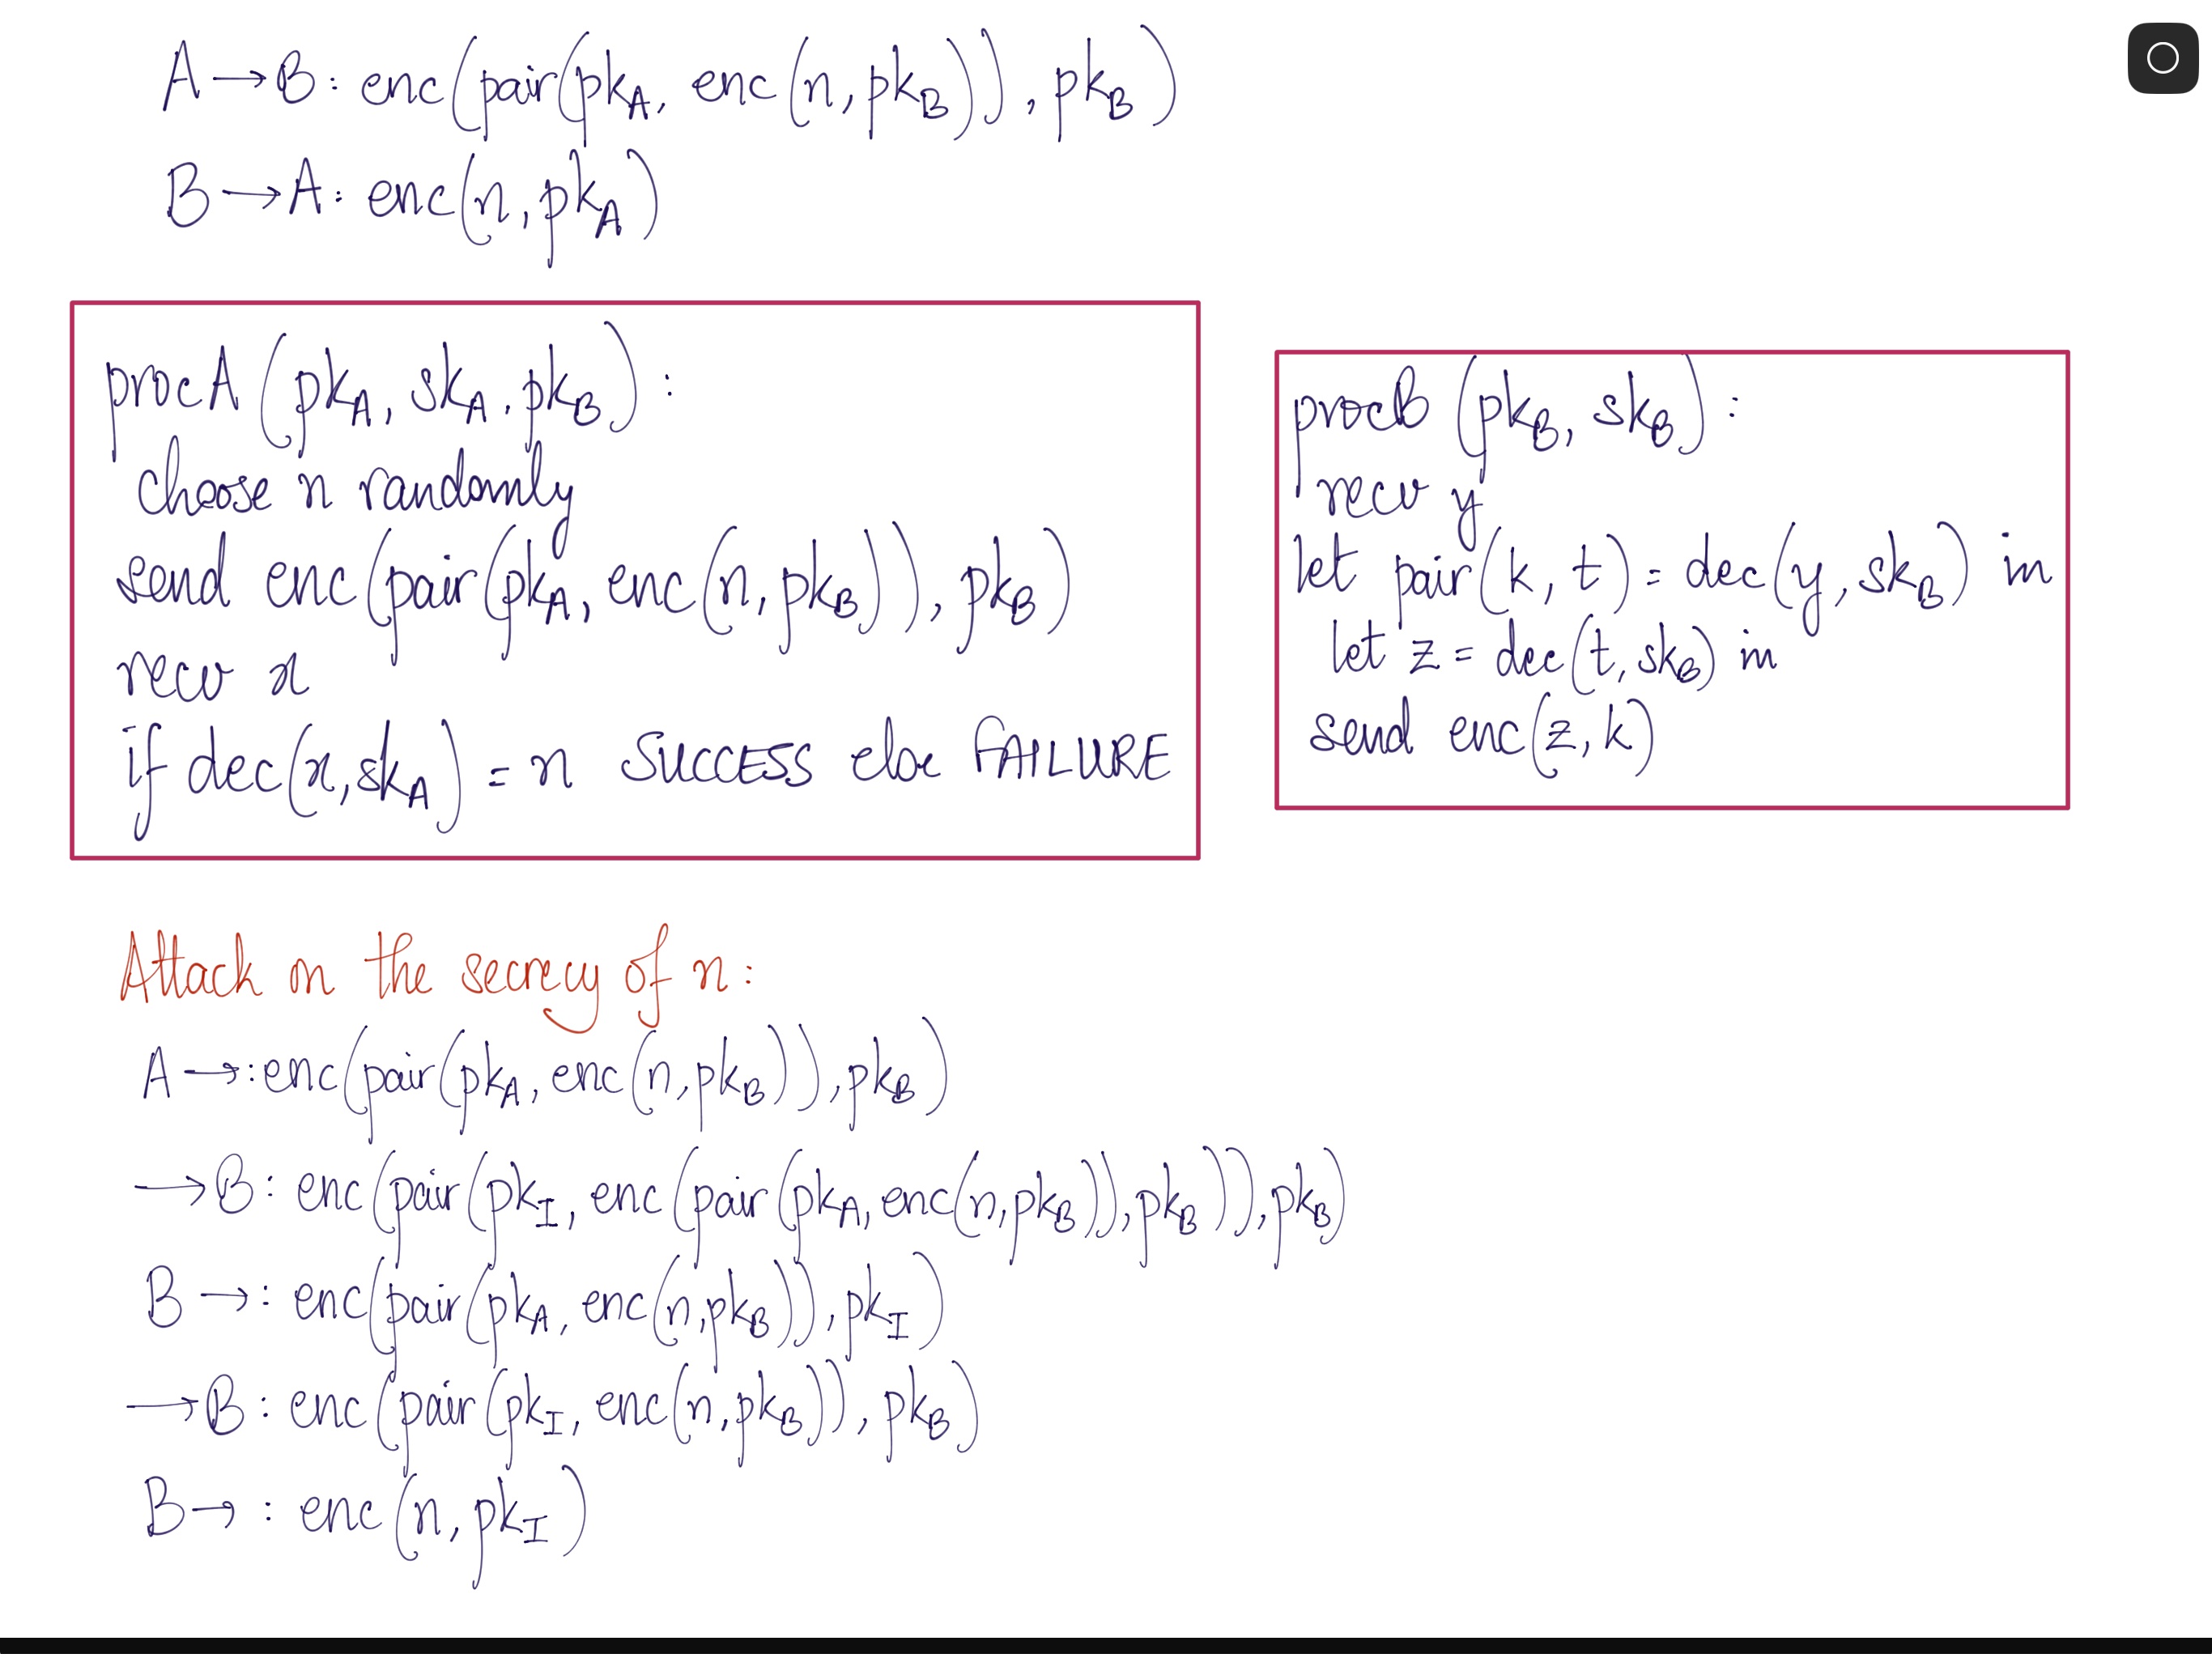 A → B: enc(pair(pk_A, enc(n, pk_B)), pk_B)
B → A: enc(n, pk_A)
procA (pk_A, sk_A, pk_B) :
choose n randomly
send enc(pair(pk_A, enc(n, pk_B)), pk_B)
recv x
if dec(x, sk_A) = n SUCCESS else FAILURE
procB (pk_B, sk_B) :
recv y
let pair(k, t) = dec(y, sk_B) in
let z = dec(t, sk_B) in
send enc(z, k)
Attack on the secrecy of n:
A → : enc(pair(pk_A, enc(n, pk_B)), pk_B)
→ B: enc(pair(pk_I, enc(pair(pk_A, enc(n, pk_B)), pk_B)), pk_B)
B → : enc(pair(pk_A, enc(n, pk_B)), pk_I)
→ B : enc(pair(pk_I, enc(n, pk_B)), pk_B)
B → : enc(n, pk_I)